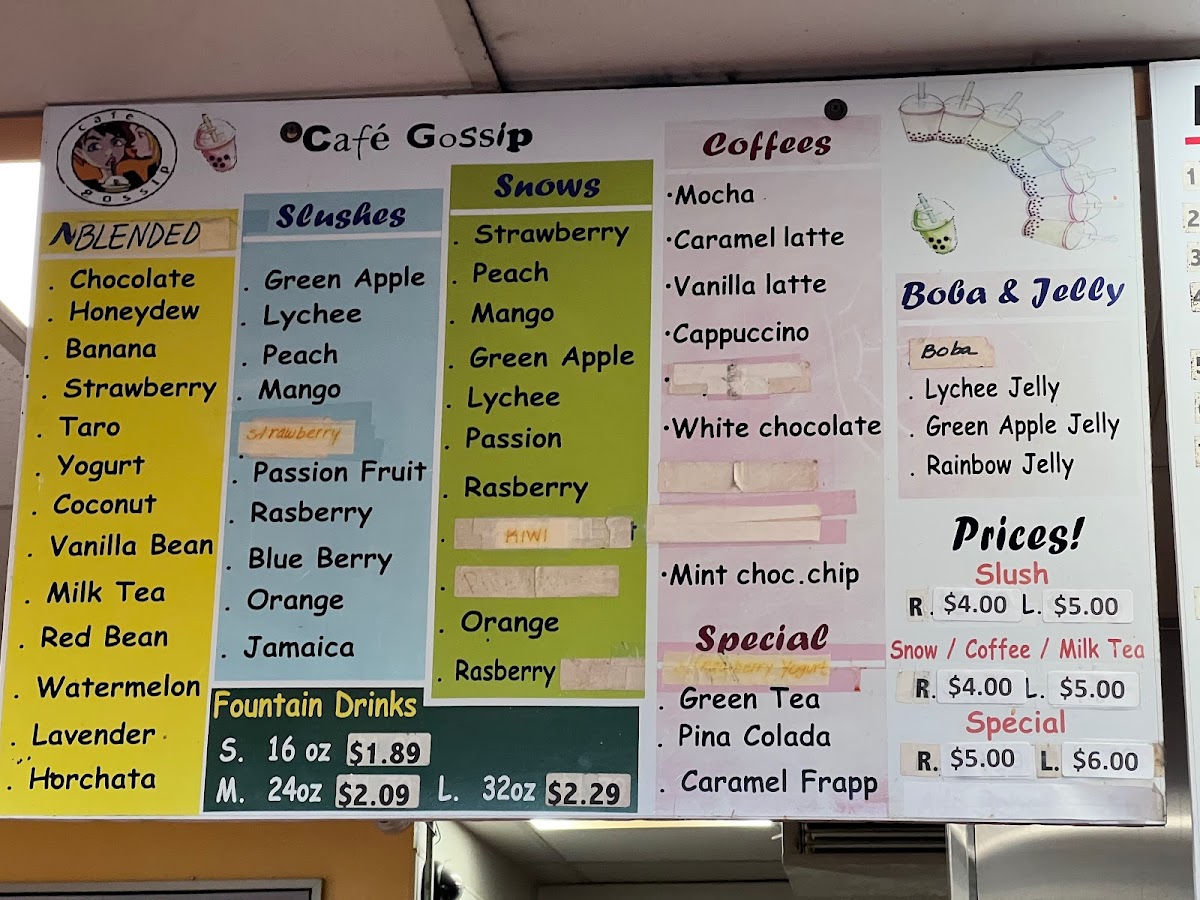 cafe
gossip
Café Gossip
BLENDED
. Chocolate
. Honeydew
. Banana
. Strawberry
. Taro
. Yogurt
. Coconut
. Vanilla Bean
. Milk Tea
. Red Bean
. Watermelon
. Lavender
. Horchata
Slushes
. Green Apple
. Lychee
. Peach
. Mango
. Strawberry
. Passion Fruit
. Rasberry
. Blue Berry
. Orange
. Jamaica
Snows
. Strawberry
. Peach
. Mango
. Green Apple
. Lychee
. Passion
. Rasberry
. KIWI
. Orange
Rasberry
Fountain Drinks
S. 16 oz $1.89
M. 24oz $2.09 L. 32oz $2.29
Coffees
·Mocha
·Caramel latte
·Vanilla latte
·Cappuccino
·White chocolate
·Mint choc.chip
Special
Strawberry Yogurt
. Green Tea
. Pina Colada
. Caramel Frapp
Boba & Jelly
Boba
. Lychee Jelly
. Green Apple Jelly
. Rainbow Jelly
Prices!
Slush
R. $4.00 L. $5.00
Snow / Coffee / Milk Tea
R. $4.00 L. $5.00
Special
R. $5.00 L. $6.00
1
2
3